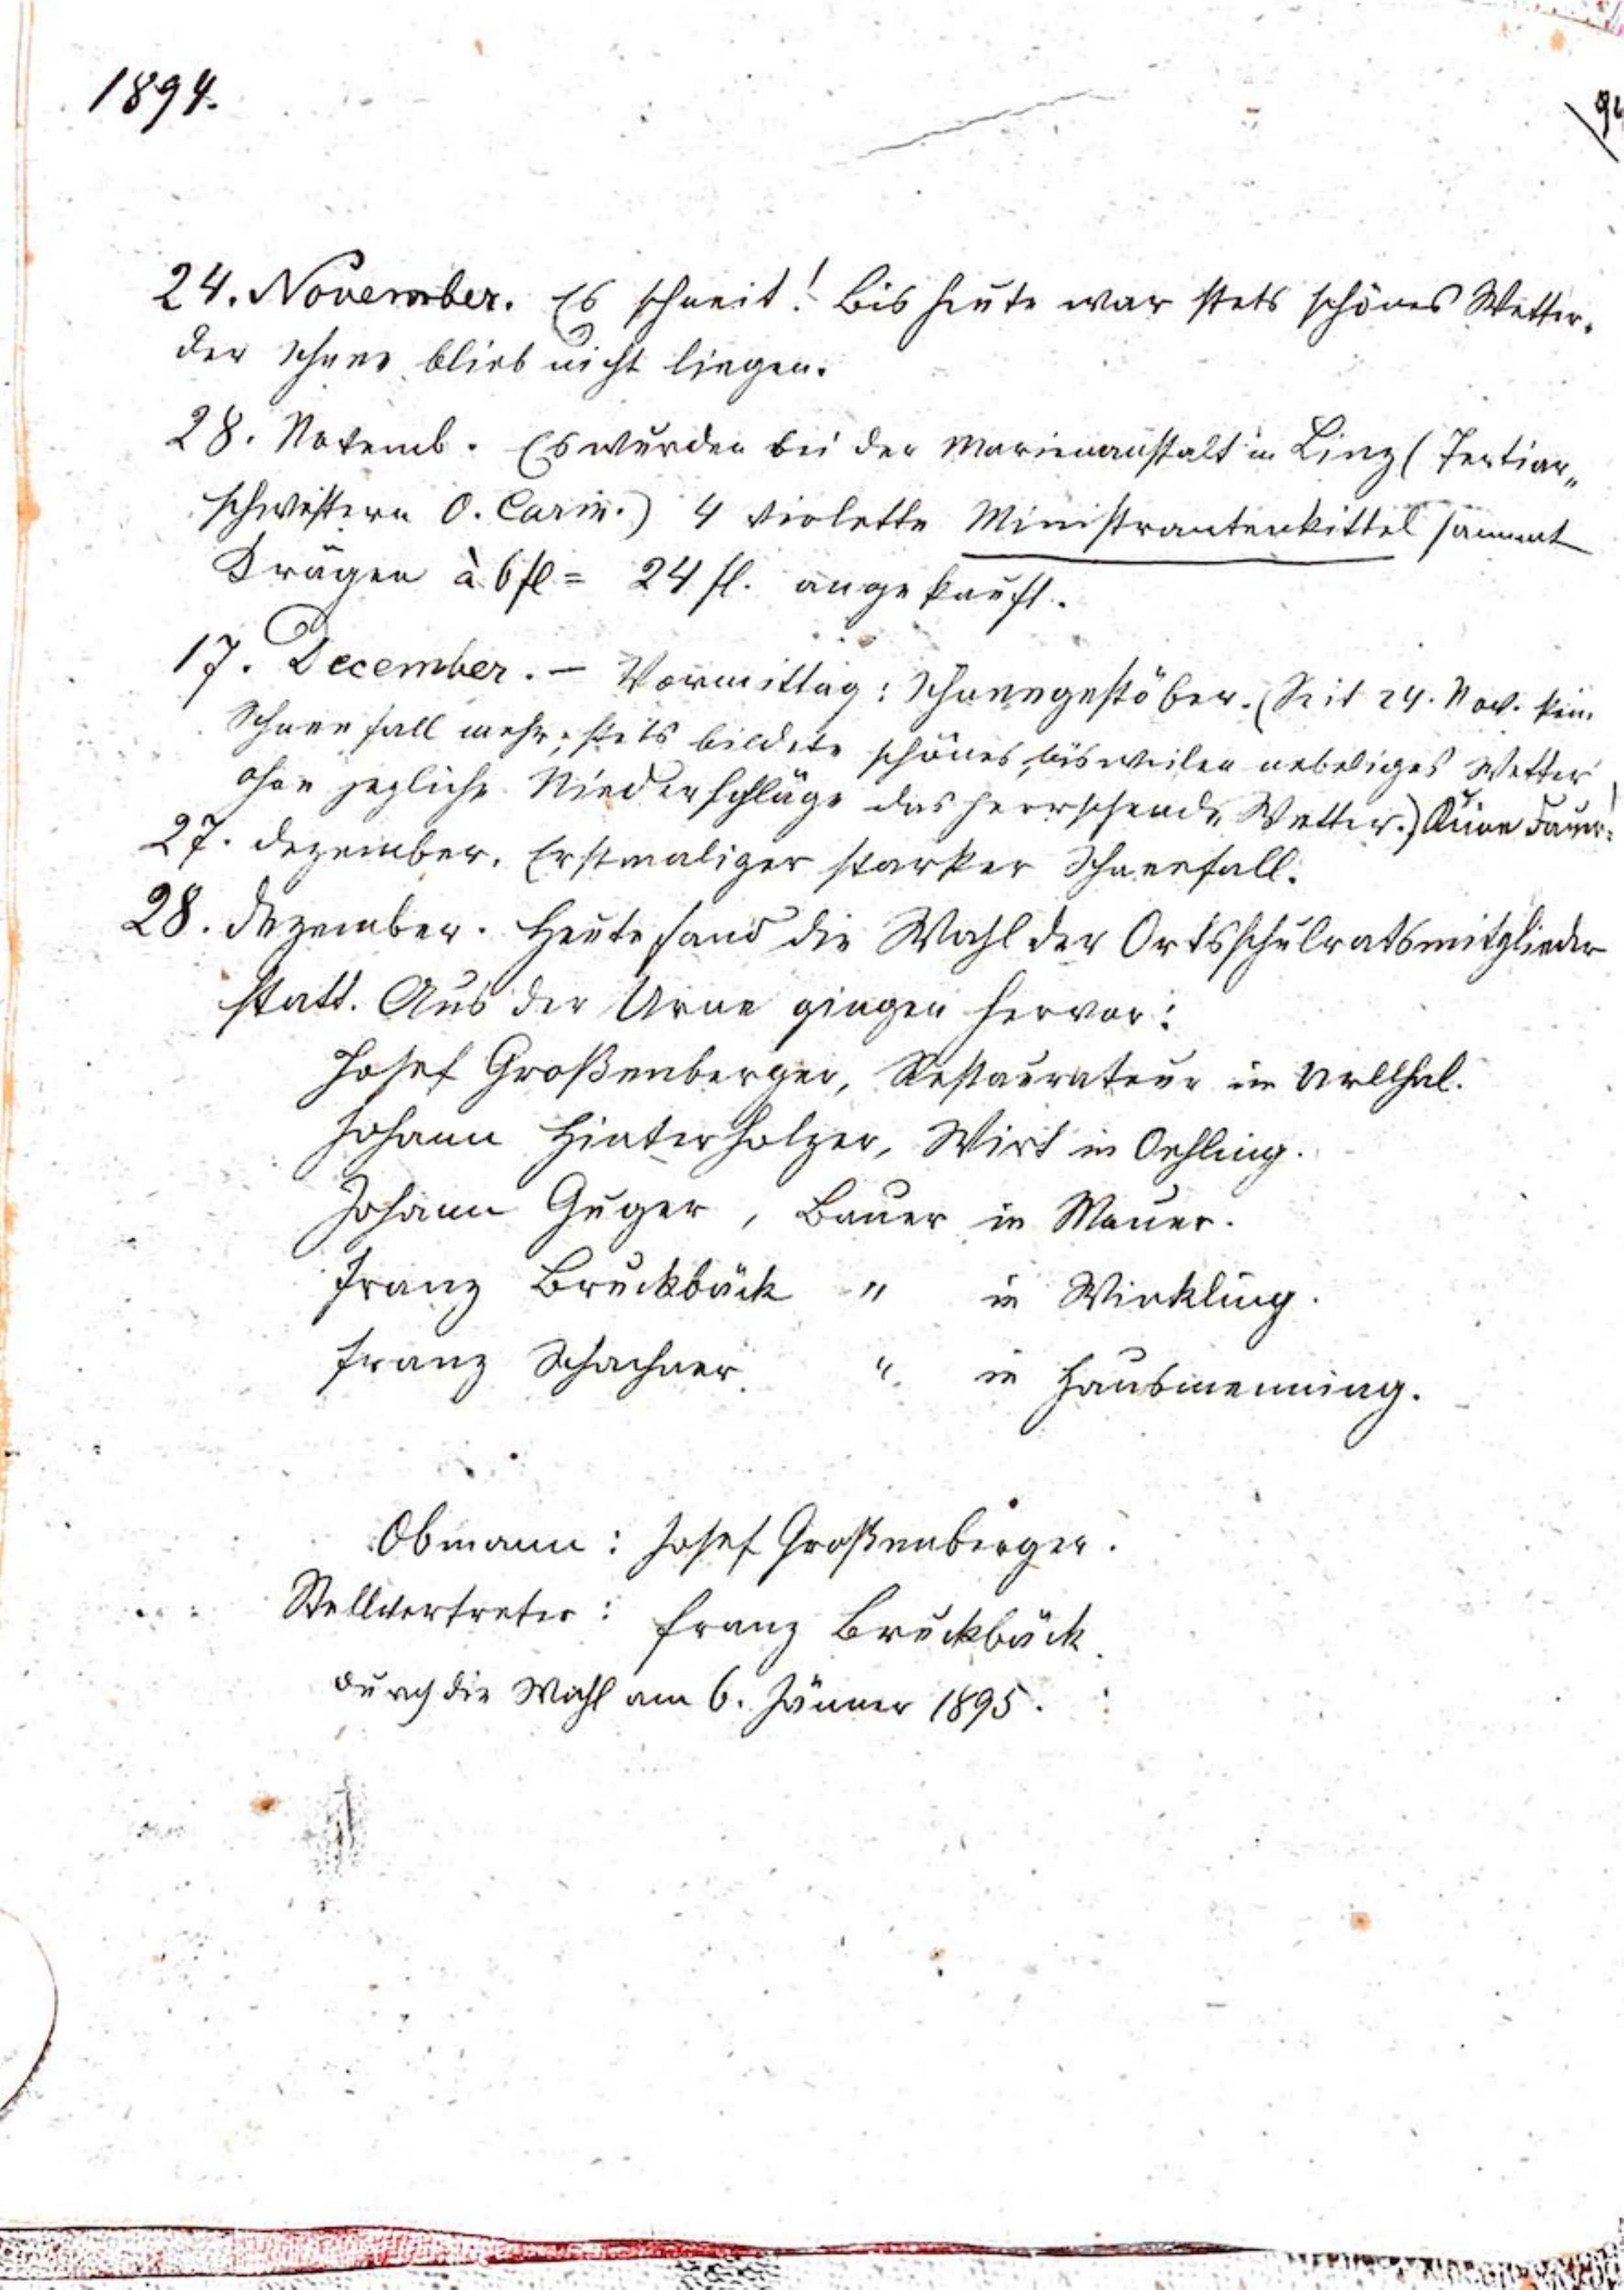 1894.
24. November. Es schneit! Bis heute war stets schönes Wetter.
der Schnee blieb nicht liegen.
28. Novemb. Es wurden bei der Marienanstalt in Linz (Tertiar„
schwestern O. Carm.) 4 violette Ministrantenkittel sammt
Krägen à 6 fl = 24 fl. angekauft.
17. December. – Vormittag: Schneegestöber. (Seit 24. Nov. kein
Schneefall mehr, stets bildete schönes, bisweilen nebeliges Wetter
ohne jegliche Niederschläge das herrschende Wetter.) Keine Dauer!
27. Dezember. Erstmaliger starker Schneefall.
28. Dezember. Heute fand die Wahl der Ortsschulratsmitglieder
statt. Aus der Urne gingen hervor:
Josef Großenberger, Restaurateur im Urlthal.
Johann Hinterholzer, Wirt in Oehling.
Johann Guger, Bauer in Mauer.
Franz Bruckbäck " in Winkling.
Franz Schachner " in Hausmenning.
Obmann: Josef Großenberger.
Stellvertreter: Franz Bruckbäck.
durch die Wahl am 6. Jänner 1895.